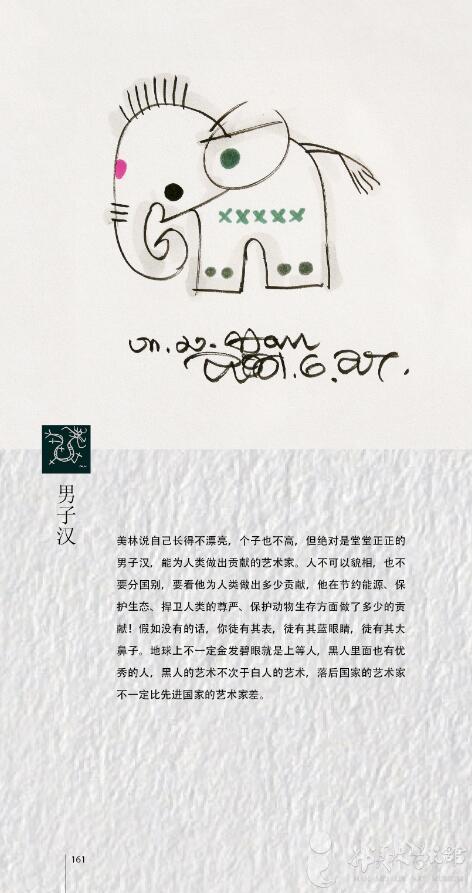 2001.6.
男子汉
美林说自己长得不漂亮，个子也不高，但绝对是堂堂正正的
男子汉，能为人类做出贡献的艺术家。人不可以貌相，也不
要分国别，要看他为人类做出多少贡献，他在节约能源、保
护生态、捍卫人类的尊严、保护动物生存方面做了多少的贡
献！假如没有的话，你徒有其表，徒有其蓝眼睛，徒有其大
鼻子。地球上不一定金发碧眼就是上等人，黑人里面也有优
秀的人，黑人的艺术不次于白人的艺术，落后国家的艺术家
不一定比先进国家的艺术家差。
161
HAN MEILIN ART MUSEUM